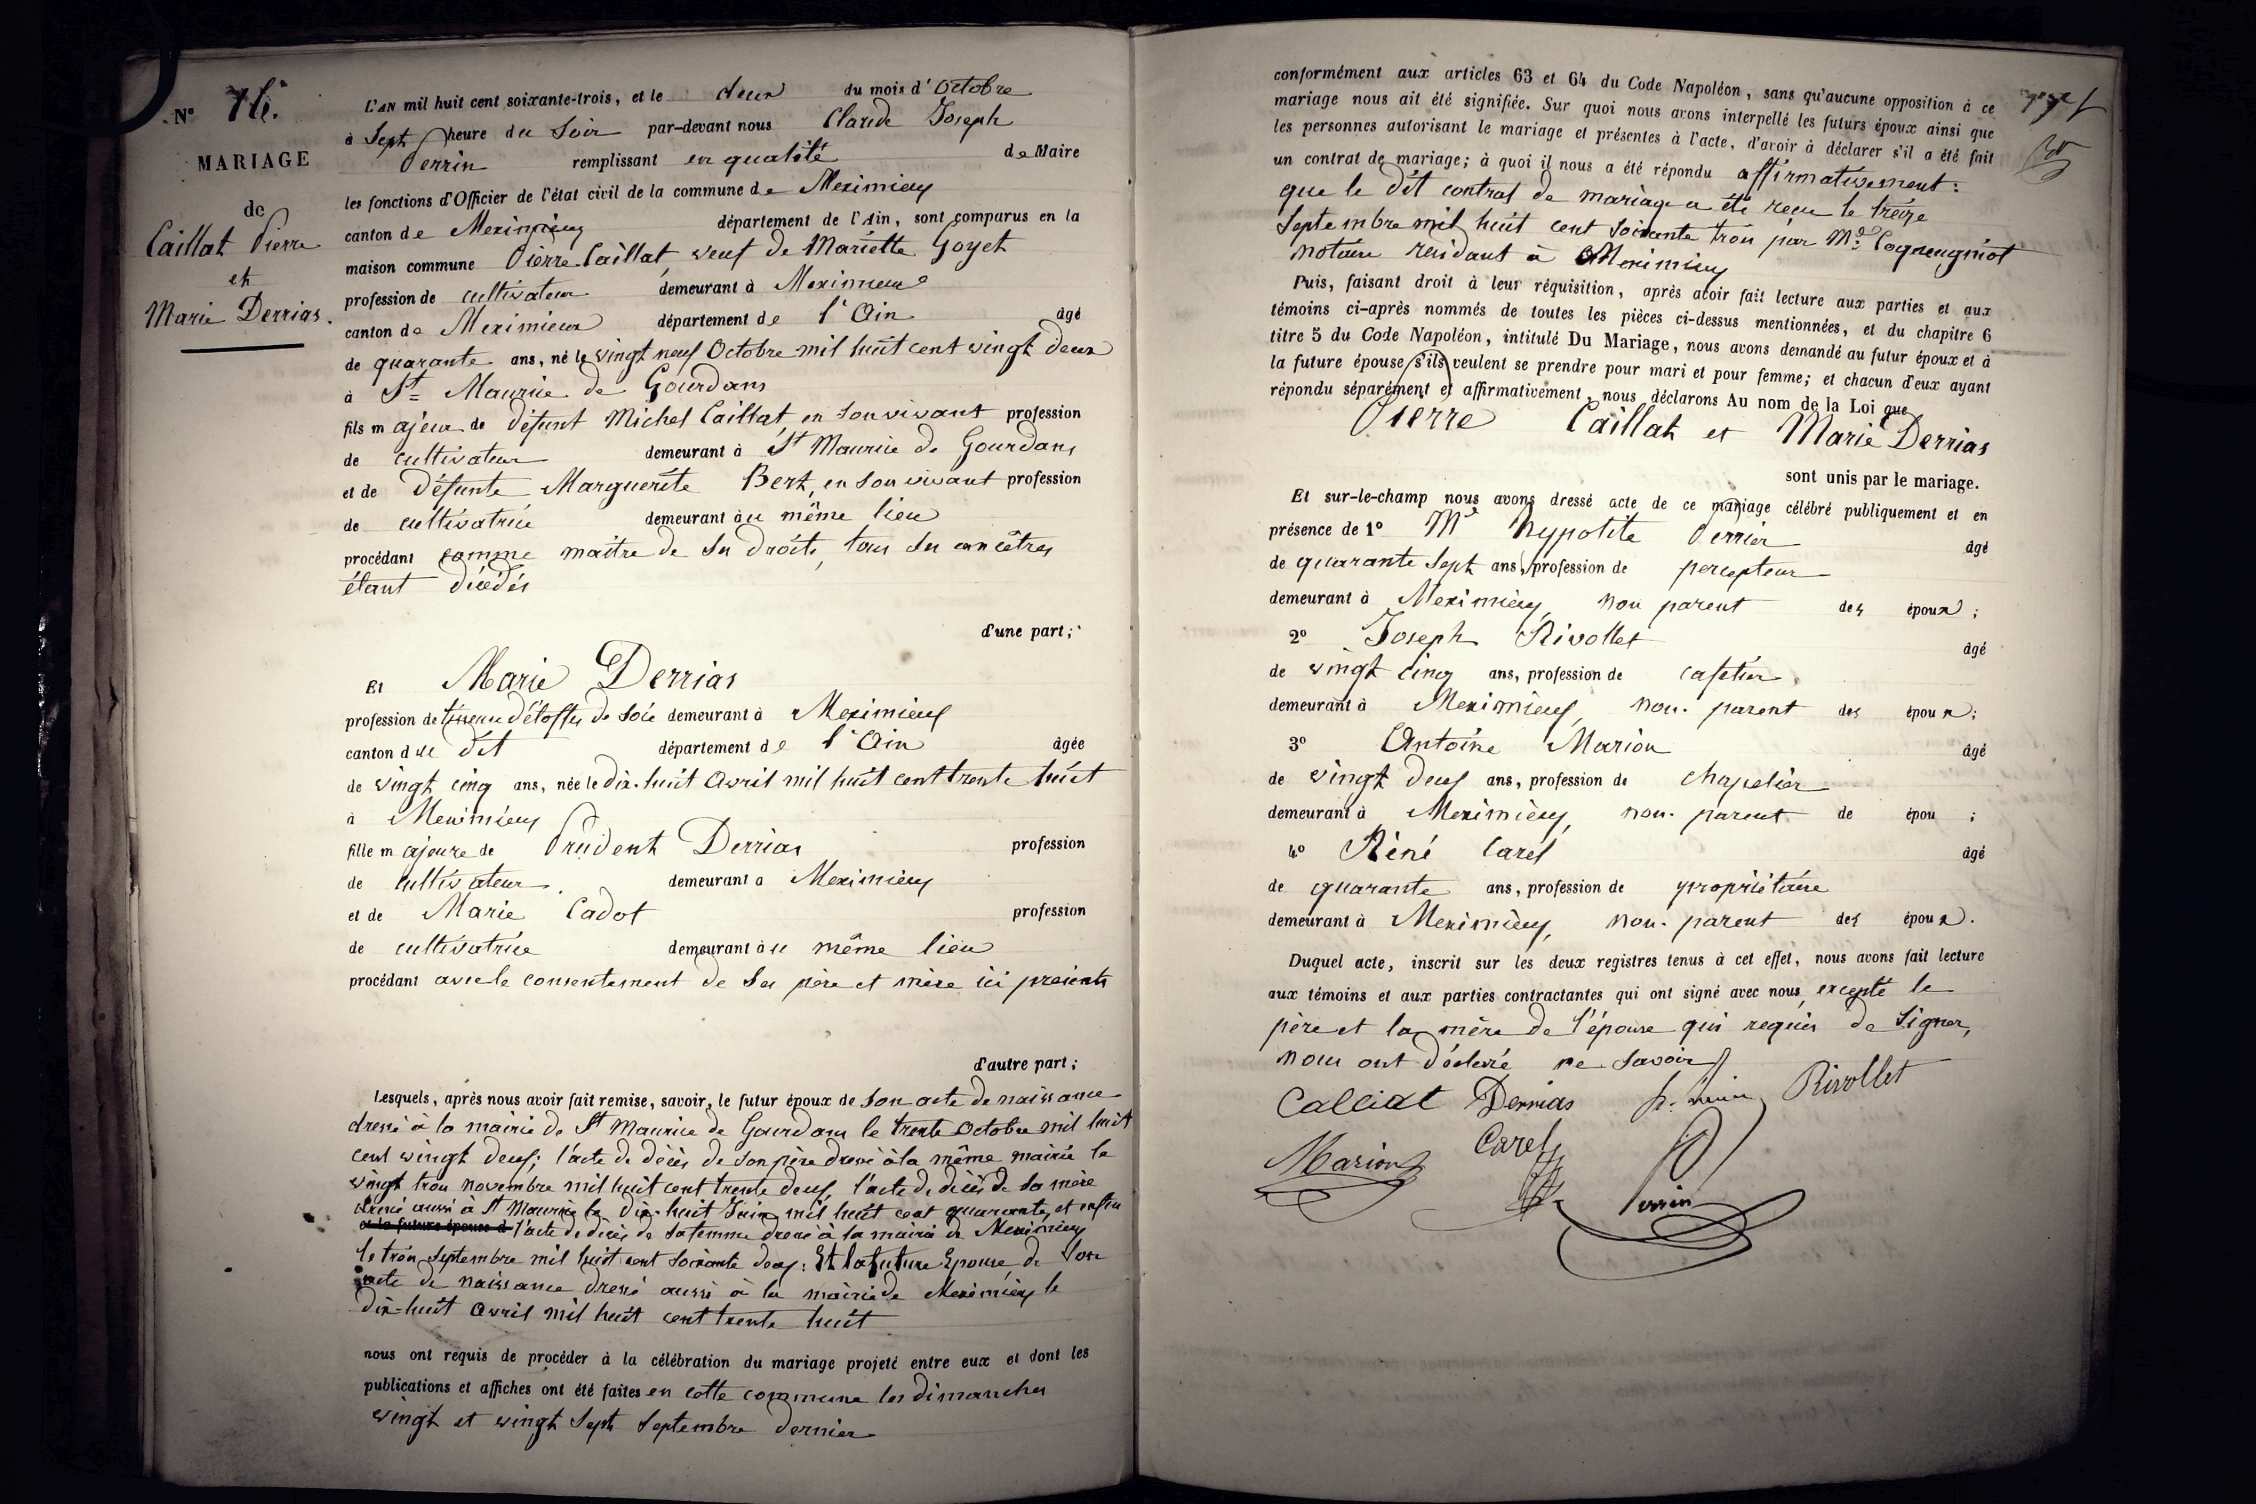 N°
MARIAGE
de
Caillat Pierre
et
Marie Derrias.
L'AN mil huit cent soixante-trois, et le deux du mois d'Octobre
à Sept heure du Soir par-devant nous Claude Joseph
Perrin remplissant en qualité de Maire
les fonctions d'Officier de l'état civil de la commune de Meximieux
canton de Meximieux département de l'Ain, sont comparus en la
maison commune Pierre Caillat, veuf de Mariette Goyet
profession de cultivateur demeurant à Meximieux
canton de Meximieux département de l'Ain âgé
de quarante ans, né le vingt neuf Octobre mil huit cent vingt deux
à St Maurice de Gourdans
fils majeur de défunt Michel Caillat, en son vivant profession
de cultivateur demeurant à St Maurice de Gourdans
et de défunte Marguerite Bert, en son vivant profession
de cultivatrice demeurant au même lieu
procédant comme maître de ses droits, tous ses ancêtres
étant décédés
d'une part;
Et Marie Derrias
profession de tisseuse d'étoffes de Soie demeurant à Meximieux
canton du dit département de l'Ain âgée
de vingt cinq ans, née le dix-huit Avril mil huit cent trente huit
à Meximieux
fille majeure de Prudent Derrias profession
de cultivateur demeurant à Meximieux
et de Marie Cadot profession
de cultivatrice demeurant au même lieu
procédant avec le consentement de ses père et mère ici présents
d'autre part;
Lesquels, après nous avoir fait remise, savoir, le futur époux de son acte de naissance
dressé à la mairie de St Maurice de Gourdans le trente Octobre mil huit
cent vingt deux; l'acte de décès de son père dressé à la même mairie le
vingt trois novembre mil huit cent trente deux, l'acte de décès de sa mère
dressé aussi à St Maurice le dix-huit Juin mil huit cent quarante, et enfin
et la future épouse d l'acte de décès de sa femme dressé à la mairie de Meximieux
le trois Septembre mil huit cent soixante deux: Et la future Epouse de son
acte de naissance dressé aussi à la mairie de Meximieux le
dix-huit Avril mil huit cent trente huit
nous ont requis de procéder à la célébration du mariage projeté entre eux et dont les
publications et affiches ont été faites en cette commune les dimanches
vingt et vingt sept Septembre dernier
conformément aux articles 63 et 64 du Code Napoléon, sans qu'aucune opposition à ce
mariage nous ait été signifiée. Sur quoi nous avons interpellé les futurs époux ainsi que
les personnes autorisant le mariage et présentes à l'acte, d'avoir à déclarer s'il a été fait
un contrat de mariage; à quoi il nous a été répondu affirmativement:
que le dit contrat de mariage a été reçu le treize
Septembre mil huit cent soixante trois par Me Coquengniot
notaire résidant à Meximieux
Puis, faisant droit à leur réquisition, après avoir fait lecture aux parties et aux
témoins ci-après nommés de toutes les pièces ci-dessus mentionnées, et du chapitre 6
titre 5 du Code Napoléon, intitulé Du Mariage, nous avons demandé au futur époux et à
la future épouse s'ils veulent se prendre pour mari et pour femme; et chacun d'eux ayant
répondu séparément et affirmativement, nous déclarons Au nom de la Loi que
Pierre Caillat et Marie Derrias
sont unis par le mariage.
Et sur-le-champ nous avons dressé acte de ce mariage célébré publiquement et en
présence de 1° Mr hypolite Perrier âgé
de quarante sept ans, profession de percepteur
demeurant à Meximieux, non parent des époux;
2° Joseph Rivollet âgé
de vingt cinq ans, profession de cafetier
demeurant à Meximieux, non parent des époux;
3° Antoine Marion âgé
de vingt deux ans, profession de chapelier
demeurant à Meximieux, non parent de épou ;
4° Réné Carel âgé
de quarante ans, profession de propriétaire
demeurant à Meximieux, non parent des époux.
Duquel acte, inscrit sur les deux registres tenus à cet effet, nous avons fait lecture
aux témoins et aux parties contractantes qui ont signé avec nous, excepté le
père et la mère de l'épouse qui requis de signer,
nous ont déclaré ne savoir
Calliat Derrias Rivollet
Marion Carel Perrin